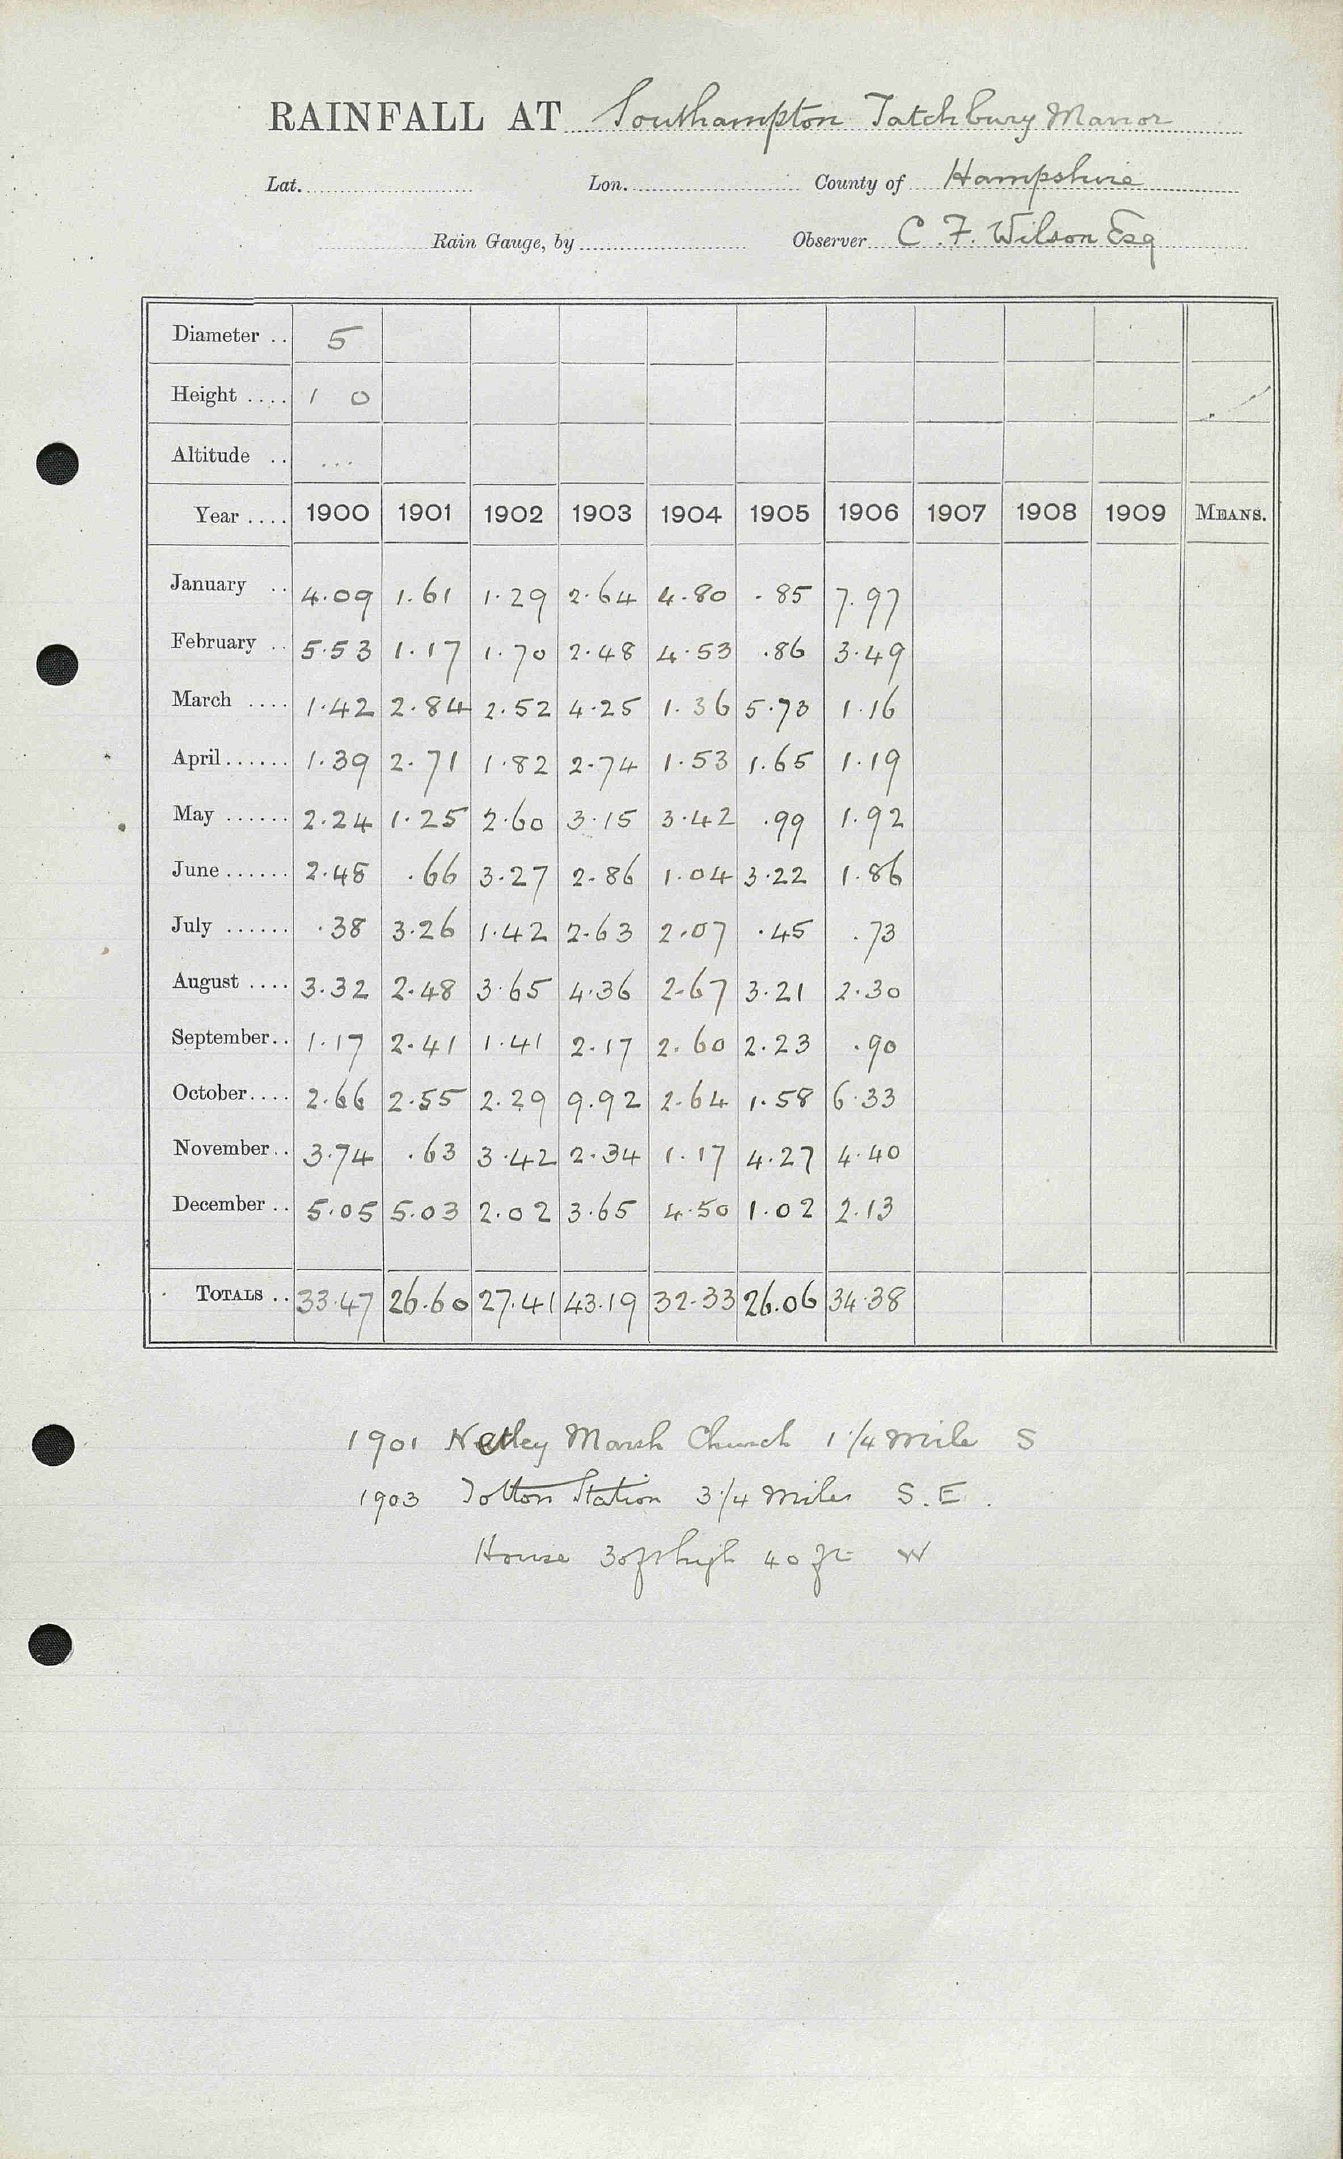 RAINFALL AT Southampton Tatchbury Manor
Lat. Lon. County of Hampshire
Rain Gauge, by Observer C. F. Wilson Esq
Diameter .. 5
Height .... 1 0
Altitude .. ...
Year .... 1900 1901 1902 1903 1904 1905 1906 1907 1908 1909 MEANS.
January .. 4.09 1.61 1.29 2.64 4.80 .85 7.97
February .. 5.53 1.17 1.70 2.48 4.53 .86 3.49
March .... 1.42 2.84 2.52 4.25 1.36 5.73 1.16
April ...... 1.39 2.71 1.82 2.74 1.53 1.65 1.19
May ...... 2.24 1.25 2.60 3.15 3.42 .99 1.92
June ...... 2.48 .66 3.27 2.86 1.04 3.22 1.86
July ...... .38 3.26 1.42 2.63 2.07 .45 .73
August .... 3.32 2.48 3.65 4.36 2.67 3.21 2.30
September .. 1.17 2.41 1.41 2.17 2.60 2.23 .90
October .... 2.66 2.55 2.29 9.92 2.64 1.58 6.33
November .. 3.74 .63 3.42 2.34 1.17 4.27 4.40
December .. 5.05 5.03 2.02 3.65 4.50 1.02 2.13
TOTALS .. 33.47 26.60 27.41 43.19 32.33 26.06 34.38
1901 Netley Marsh Church 1 1/4 Mile S
1903 Totton Station 3 1/4 Miles S.E.
House 30ft high 40 ft W